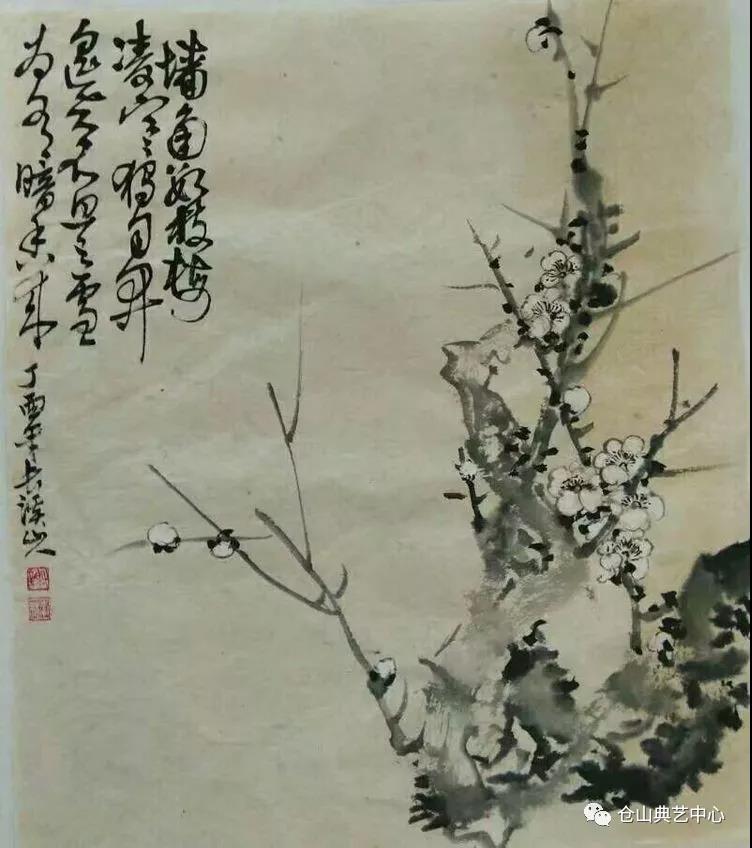 墙角数枝梅
凌寒独自开
遥知不是雪
为有暗香来
丁酉年 长溪山人
仓山典艺中心